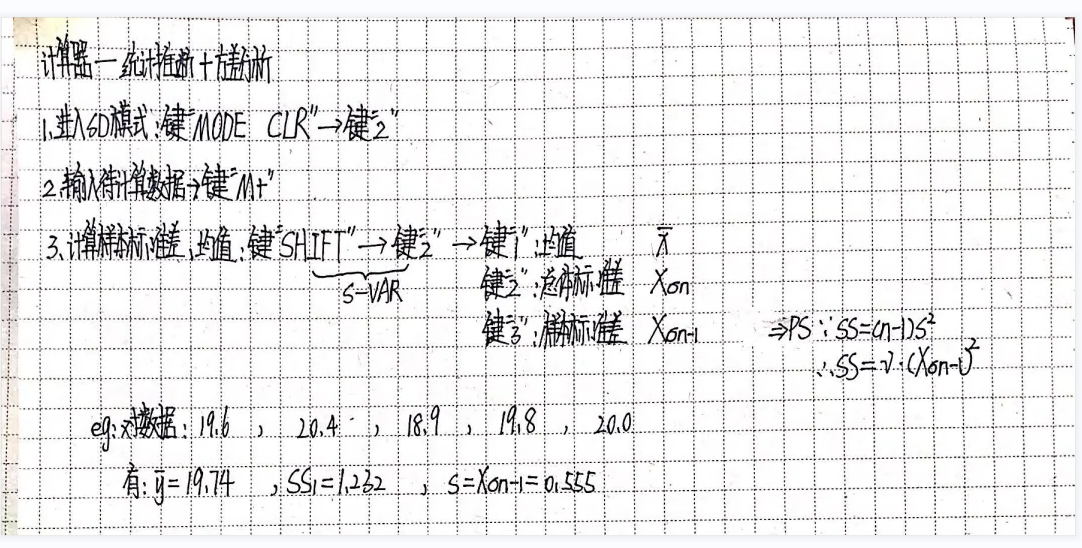 计算器—统计推断+方差分析
1.进入SD模式:键"MODE CLR"→键"2"
2.输入待计算数据→键"M+"
3.计算样本标准差、均值:键"SHIFT"→键"2"→键"1":均值 x̄
S-VAR 键"2":总体标准差 Xσn
键"3":样本标准差 Xσn-1 ⇒PS ∵SS=(n-1)S²
∴SS=ν·(Xσn-1)²
eg:对数据:19.6 , 20.4 , 18.9 , 19.8 , 20.0
有:ȳ=19.74 ,SS₁=1.232 , S=Xσn-1=0.555